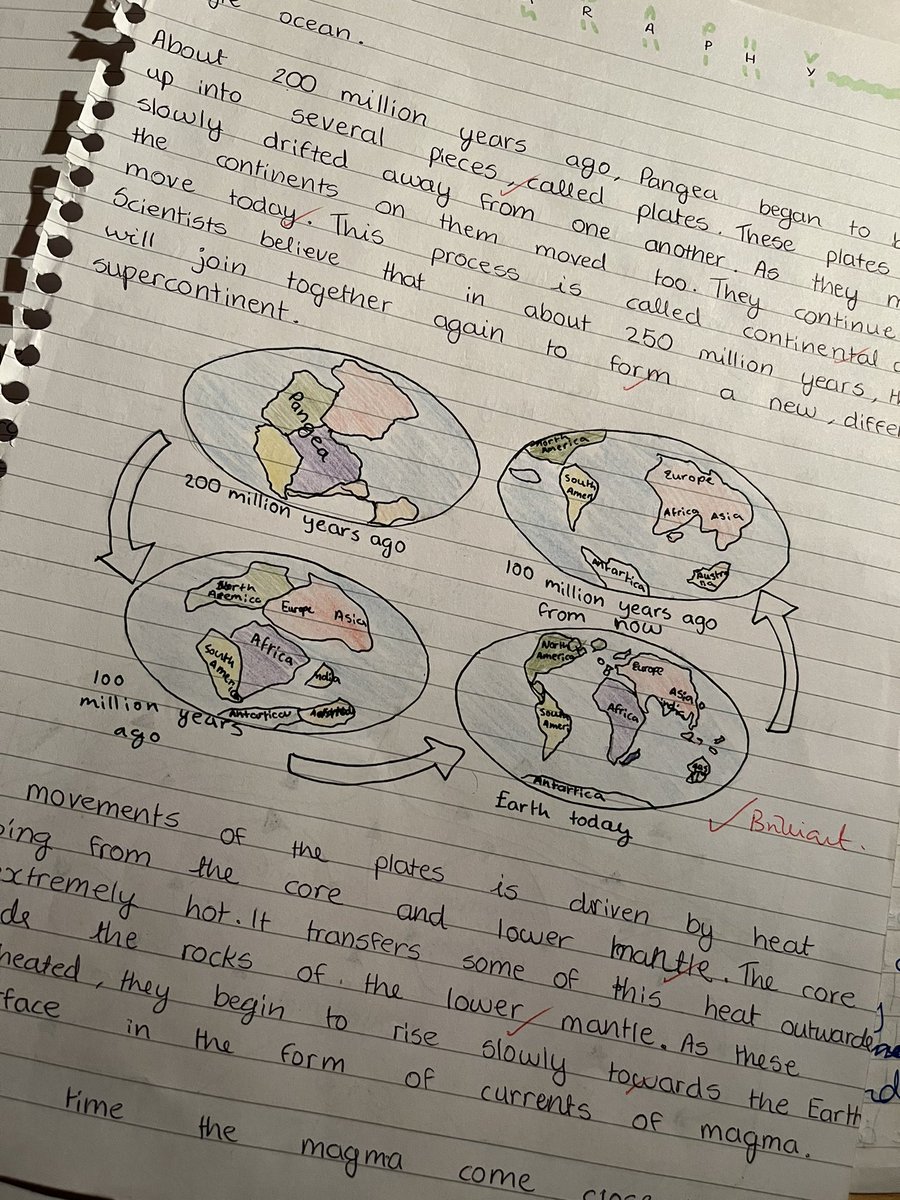 ocean.
R A P H Y
About 200 million years ago, Pangea began to
up into several pieces, called plates. These plates
slowly drifted away from one another. As they
the continents on them moved too. They continue
move today. This process is called continental
Scientists believe that in about 250 million years,
will join together again to form a new,
supercontinent.
Pangea
200 million years ago
North America
South Amer
Europe
Africa
Asia
Antartica
Austr
100 million years ago
from now
North
Europe
Asia
Africa
South
India
Antartica
100
million years
ago
North
America
Europe
Asia
India
Africa
South
Amer
Antartica
Earth today
Brilliant.
movements of the plates is driven by heat
from the core and lower mantle. The core
extremely hot. It transfers some of this heat outwards
the rocks of the lower mantle. As these
heated, they begin to rise slowly towards the Earth
in the form of currents of magma.
time the magma come